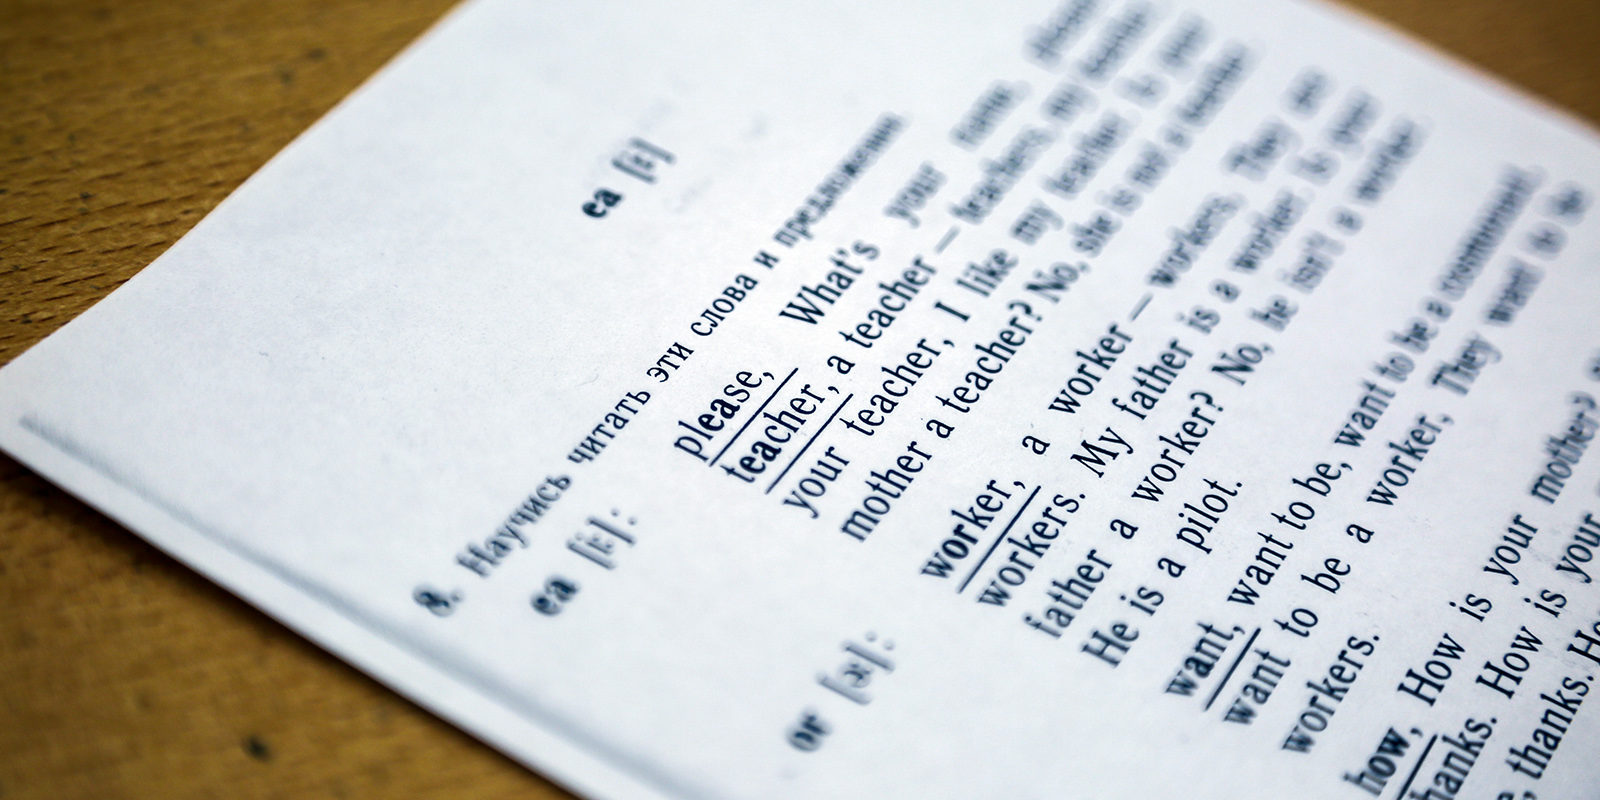 ea [i:]
8. Научись читать эти слова и предложения.
ea [i:]:
please, What's your name,
teacher, a teacher — teachers, my
your teacher, I like my teacher. Is your
mother a teacher? No, she is not a
or [ə:]:
worker, a worker — workers. They are
workers. My father is a worker. Is your
father a worker? No, he isn't a worker.
He is a pilot.
want, want to be, want to be a
want to be a worker, They want to be
workers.
how, How is your mother?
thanks. How is your
thanks.